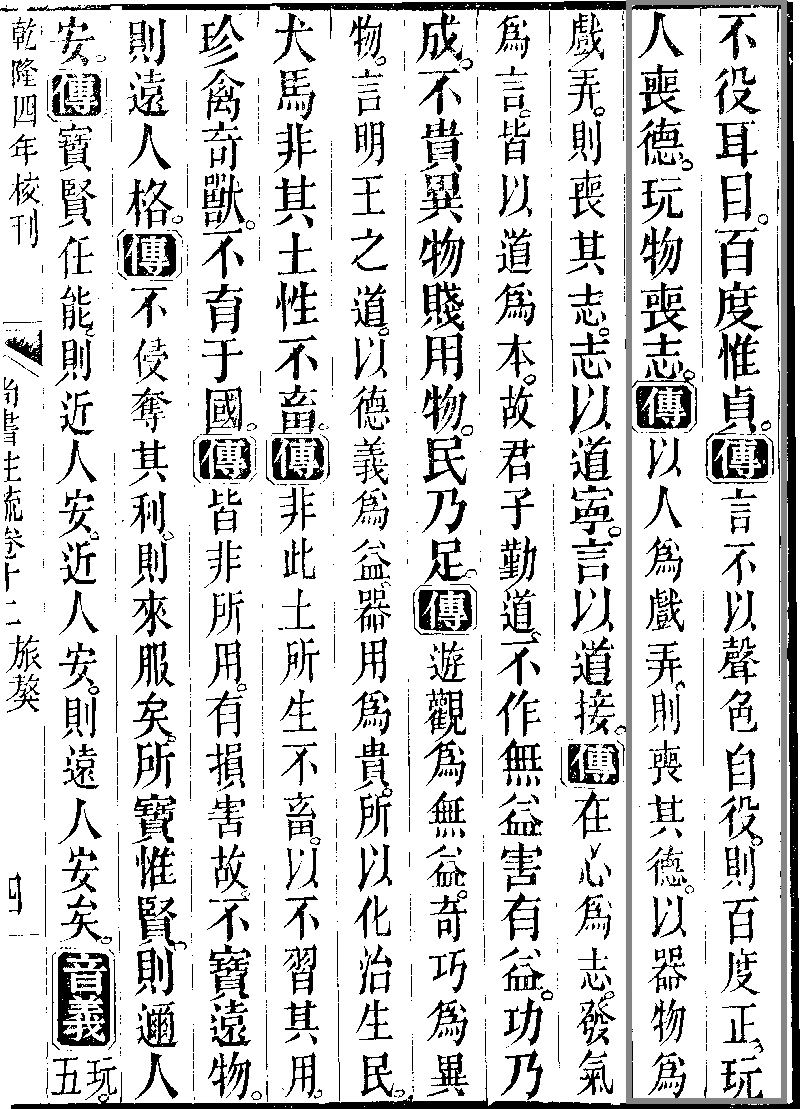 不役耳目。百度惟貞。傳言不以聲色自役。則百度正。玩
人喪德。玩物喪志。傳以人為戲弄。則喪其德。以器物為
戲弄。則喪其志。志以道寧。言以道接。傳在心為志。發氣
為言。皆以道為本。故君子勤道。不作無益害有益。功乃
成。不貴異物賤用物。民乃足。傳遊觀為無益。奇巧為異
物。言明王之道。以德義為益。器用為貴。所以化治生民。
犬馬非其土性不畜。傳非此土所生不畜。以不習其用。
珍禽奇獸。不育于國。傳皆非所用。有損害故。不寶遠物。
則遠人格。傳不侵奪其利。則來服矣。所寶惟賢。則邇人
安。傳寶賢任能。則近人安。近人安。則遠人安矣。音義玩。五
乾隆四年校刊 尚書注疏卷十二 旅獒 四